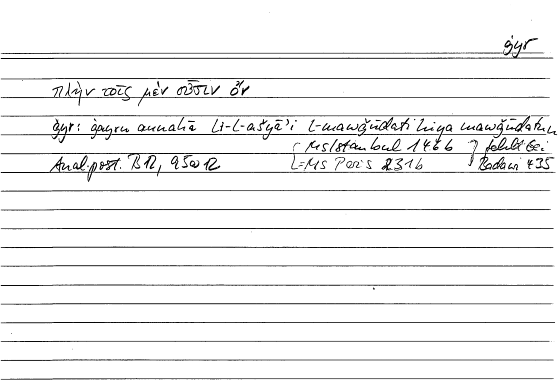 ġyr
πλὴν τοῖς μὲν οὖσιν ὄν
ġyr: ġayru annahā li-l-ašyāʾi l-mawǧūdati hiya mawǧūdatun
Ms Istanbul 1466 fehlt bei
Anal. post. B 12, 95a12 L=Ms Paris 231b Badawi 435